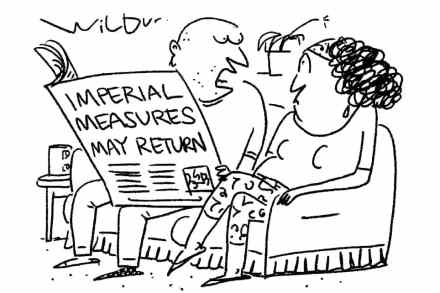 Wilbur
IMPERIAL
MEASURES
MAY RETURN